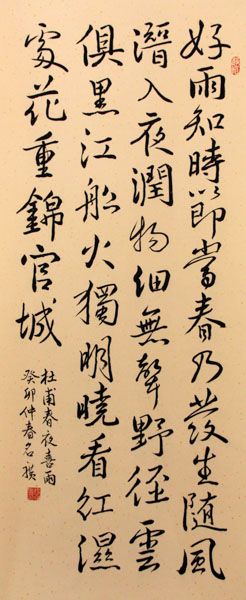 好雨知時節當春乃發生隨風
潛入夜潤物細無聲野徑雲
俱黑江船火獨明曉看紅濕
處花重錦官城
杜甫春夜喜雨
癸卯仲春名